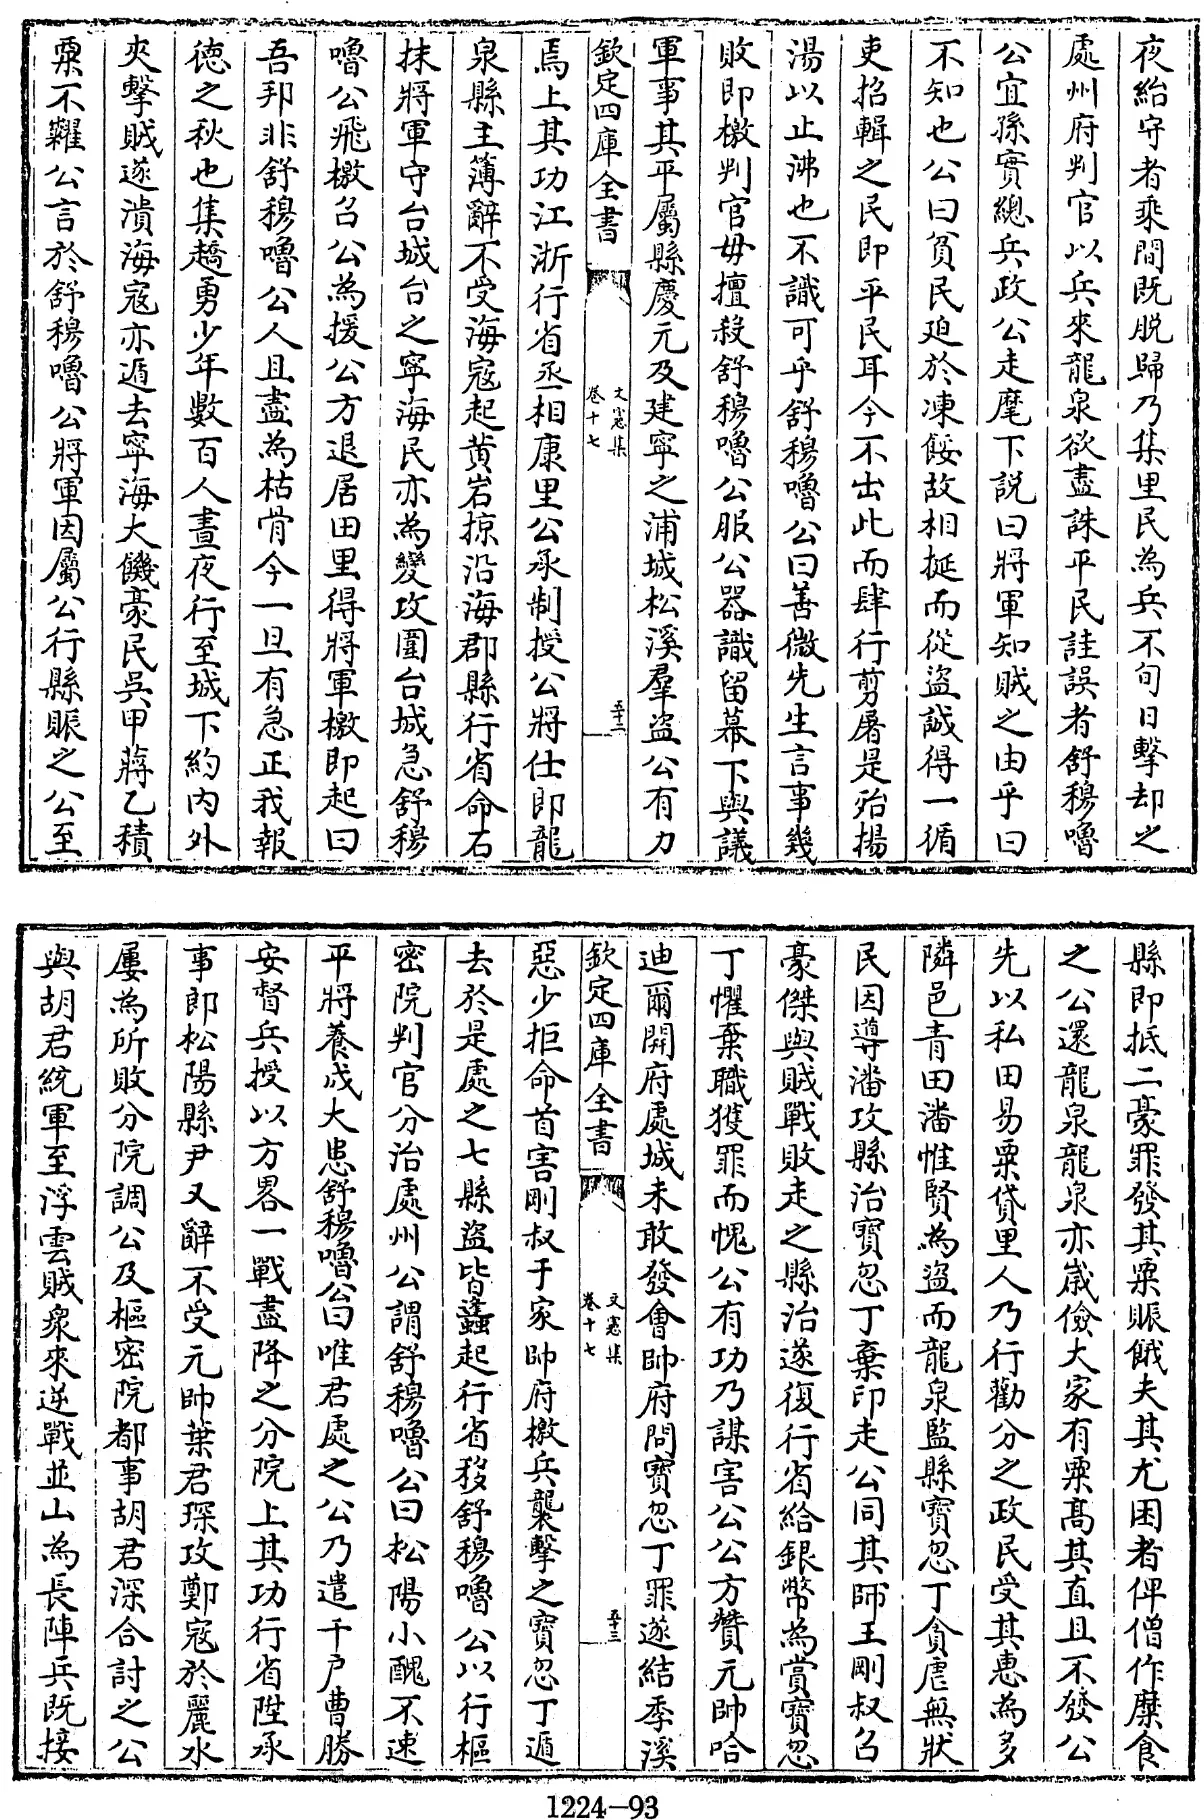 夜紿守者乘間既脱歸乃集里民為兵不旬日擊却之
處州府判官以兵來龍泉欲盡誅平民詿誤者舒穆嚕
公宜孫實總兵政公走麾下説曰將軍知賊之由乎曰
不知也公曰貧民廹於凍餒故相挻而從盜誠得一循
吏招輯之民即平民耳今不出此而肆行剪屠是殆揚
湯以止沸也不識可乎舒穆嚕公曰善微先生言事幾
敗即檄判官毋擅殺舒穆嚕公服公器識留幕下與議
軍事其平屬縣慶元及建寧之浦城松溪羣盜公有力
欽定四庫全書
文憲集
卷十七
五十二
焉上其功江浙行省丞相康里公承制授公將仕郎龍
泉縣主簿辭不受海寇起黄岩掠沿海郡縣行省命石
抹將軍守台城台之寧海民亦為變攻圍台城急舒穆
嚕公飛檄召公為援公方退居田里得將軍檄即起曰
吾邦非舒穆嚕公人且盡為枯骨今一旦有急正我報
徳之秋也集趫勇少年數百人晝夜行至城下約内外
夾擊賊遂潰海寇亦遁去寧海大饑豪民吳甲蔣乙積
粟不糶公言於舒穆嚕公將軍因屬公行縣賑之公至
縣即抵二豪罪發其粟賑餓夫其尤困者俾僧作糜食
之公還龍泉龍泉亦嵗儉大家有粟髙其直且不發公
先以私田易粟貸里人乃行勸分之政民受其惠為多
隣邑青田潘惟賢為盜而龍泉監縣寶忽丁貪虐無狀
民因導潘攻縣治寶忽丁棄印走公同其師王剛叔召
豪傑與賊戰敗走之縣治遂復行省給銀幣為賞寶忽
丁懼棄職獲罪而愧公有功乃謀害公公方贊元帥哈
迪爾開府處城未敢發會帥府問寶忽丁罪遂結季溪
欽定四庫全書
文憲集
卷十七
五十三
惡少拒命首害剛叔于家帥府檄兵襲擊之寶忽丁遁
去於是處之七縣盜皆蠭起行省移舒穆嚕公以行樞
密院判官分治處州公謂舒穆嚕公曰松陽小醜不速
平將養成大患舒穆嚕公曰唯君處之公乃遣千户曹勝
安督兵授以方畧一戰盡降之分院上其功行省陞承
事郎松陽縣尹又辭不受元帥葉君琛攻鄭寇於麗水
屢為所敗分院調公及樞密院都事胡君深合討之公
與胡君統軍至浮雲賊衆來逆戰並山為長陣兵既接
1224-93